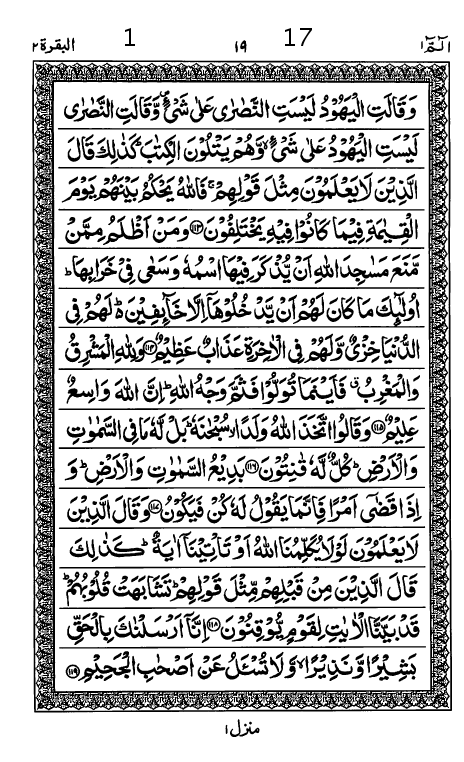 الٓمّٓ ١ 17 ١٩ 1 البقرة ٢
وَقَالَتِ الْيَهُوْدُ لَيْسَتِ النَّصٰرٰى عَلٰى شَىْءٍ ۪ وَّقَالَتِ النَّصٰرٰى
لَيْسَتِ الْيَهُوْدُ عَلٰى شَىْءٍ ۙ وَّهُمْ يَتْلُوْنَ الْكِتٰبَ ؕ كَذٰلِكَ قَالَ
الَّذِيْنَ لَا يَعْلَمُوْنَ مِثْلَ قَوْلِهِمْ ۚ فَاللّٰهُ يَحْكُمُ بَيْنَهُمْ يَوْمَ
الْقِيٰمَةِ فِيْمَا كَانُوْا فِيْهِ يَخْتَلِفُوْنَ ﴿۱۱۳﴾ وَمَنْ اَظْلَمُ مِمَّنْ
مَّنَعَ مَسٰجِدَ اللّٰهِ اَنْ يُّذْكَرَ فِيْهَا اسْمُهٗ وَسَعٰى فِىْ خَرَابِهَا ؕ
اُولٰٓئِكَ مَا كَانَ لَهُمْ اَنْ يَّدْخُلُوْهَآ اِلَّا خَآئِفِيْنَ ؕ۬ لَهُمْ فِى
الدُّنْيَا خِزْىٌ وَّلَهُمْ فِى الْاٰخِرَةِ عَذَابٌ عَظِيْمٌ ﴿۱۱۴﴾ وَلِلّٰهِ الْمَشْرِقُ
وَالْمَغْرِبُ ۗ فَاَيْنَمَا تُوَلُّوْا فَثَمَّ وَجْهُ اللّٰهِ ؕ اِنَّ اللّٰهَ وَاسِعٌ
عَلِيْمٌ ﴿۱۱۵﴾ وَقَالُوا اتَّخَذَ اللّٰهُ وَلَدًا ۙ سُبْحٰنَهٗ ؕ بَلْ لَّهٗ مَا فِى السَّمٰوٰتِ
وَالْاَرْضِ ؕ كُلٌّ لَّهٗ قٰنِتُوْنَ ﴿۱۱۶﴾ بَدِيْعُ السَّمٰوٰتِ وَالْاَرْضِ ؕ وَ
اِذَا قَضٰٓى اَمْرًا فَاِنَّمَا يَقُوْلُ لَهٗ كُنْ فَيَكُوْنُ ﴿۱۱۷﴾ وَقَالَ الَّذِيْنَ
لَا يَعْلَمُوْنَ لَوْلَا يُكَلِّمُنَا اللّٰهُ اَوْ تَاْتِيْنَآ اٰيَةٌ ؕ كَذٰلِكَ
قَالَ الَّذِيْنَ مِنْ قَبْلِهِمْ مِّثْلَ قَوْلِهِمْ ؕ تَشَابَهَتْ قُلُوْبُهُمْ ؕ
قَدْ بَيَّنَّا الْاٰيٰتِ لِقَوْمٍ يُّوْقِنُوْنَ ﴿۱۱۸﴾ اِنَّآ اَرْسَلْنٰكَ بِالْحَقِّ
بَشِيْرًا وَّنَذِيْرًا ۙ وَّلَا تُسْـَٔلُ عَنْ اَصْحٰبِ الْجَحِيْمِ ﴿۱۱۹﴾
منزل ١